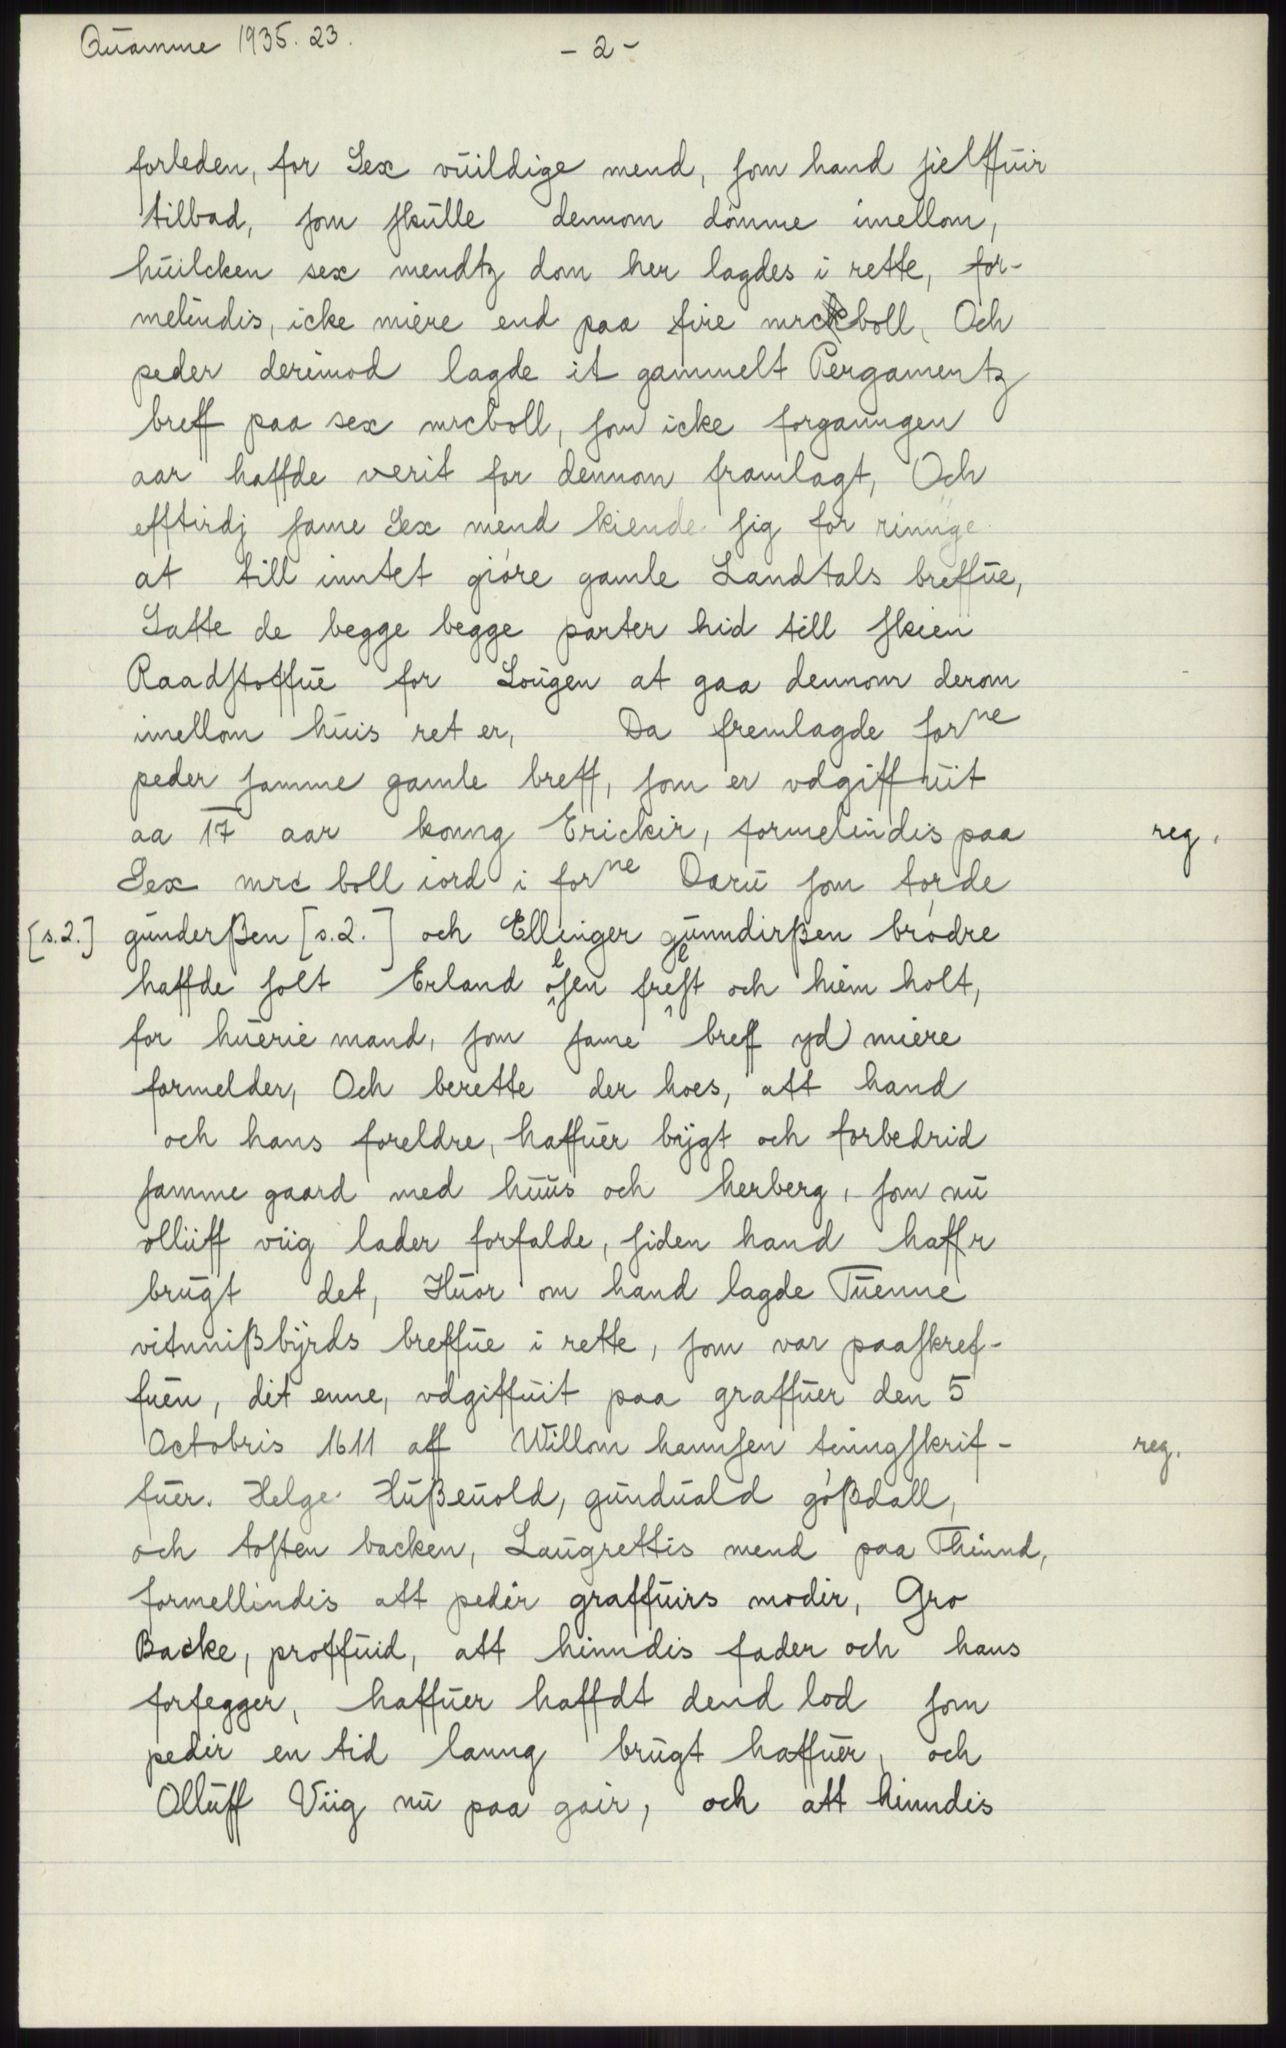 Quamme 1935. 23.
- 2 -
forleden, for Sex vuildige mend, som hand sielffuir
tilbad, som skulle dennom dømme imellom,
huilcken sex mendtz dom her lagdes i rette, for-
melindis, icke miere end paa fire mrcboll, Och
peder derimod lagde it gammelt Pergamentz
breff paa sex mrcboll, som icke forganngen
aar haffde verit for dennom framlagt, Och
efftirdj same Sex mend kiende sig for rinnge
at till inntet giøre gamle Landtals breffue,
Satte de begge begge parter hid till skien
Raadstoffue for Lougen at gaa dennom derom
imellom huis ret er, Da fremlagde forne
peder samme gamle breff, som er vdgiffuit
aa 17 aar konng Erickir, formelindis paa
reg.
Sex mrc boll iord i forne Daru som torde
[s.2.] gunderßen [s.2.] och Ellinger gunndirßen brødre
haffde solt Erland olsen frelst och hiem holt,
for huerie mand, som same breff yd miere
formelder, Och berette der hoes, att hand
och hans foreldre, haffuer bygt och forbedrid
samme gaard med huus och herberg, som nu
olluff viig lader forfalde, siden hand haffr
brugt det, Huor om hand lagde Tuenne
vitnnißbyrds breffue i rette, som var paaskref-
fuen, dit enne, vdgiffuit paa graffuer den 5
Octobris 1611 aff Willom hannsen tinngskrif-
reg.
fuer. Helge Hußeuold, gunduald gøßdall,
och tosten backen, Laugrettis mend paa Thinnd,
formellindis att pedir graffuirs modir, Gro
Backe, proffuid, att hinndis fader och hans
forfegger, haffuer haffdt dend lod som
pedir en tid lanng brugt haffuer, och
Olluff Viig nu paa goir, och att hinndis